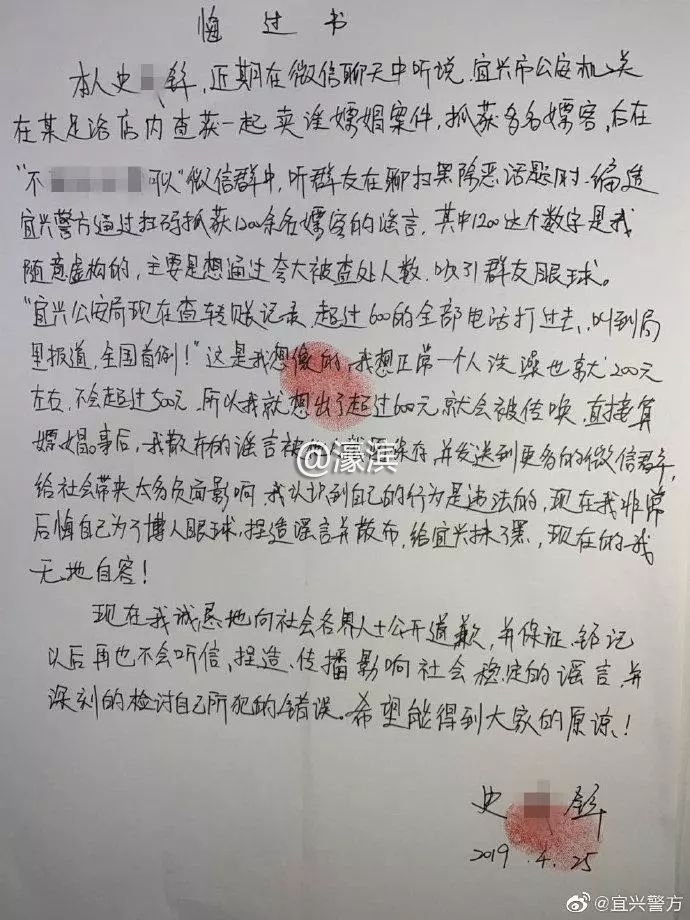 悔过书
本人史 钚，近期在微信聊天中听说，宜兴市公安机关
在某足浴店内查获一起卖淫嫖娼案件，抓获多名嫖客，后在
“不 可以”微信群中，听群友在聊扫黑除恶话题时，编造
宜兴警方通过扫码抓获1200余名嫖客的谣言，其中1200这个数字是我
随意虚构的，主要是想通过夸大被查处人数，吹引群友眼球。
“宜兴公安局现在查转账记录，超过600的全部电话打过去，叫到局
里报道，全国首例！”这是我想像的，我想正常一个人洗澡也就200元
左右，不会超过500元，所以我就想出了超过600元就会被传唤，直接算
嫖娼。事后，我散布的谣言被 人 保存，并发送到更多的微信群，
给社会带来太多负面影响，我认识到自己的行为是违法的，现在我非常
后悔自己为了博人眼球，捏造谣言并散布，给宜兴抹了黑，现在的我
无地自容！
现在我诚恳地向社会各界人士公开道歉，并保证，铭记
以后再也不会听信、捏造、传播影响社会稳定的谣言，并
深刻的检讨自己所犯的错误。希望能得到大家的原谅！
史
2019.4.25
@濠滨
@宜兴警方